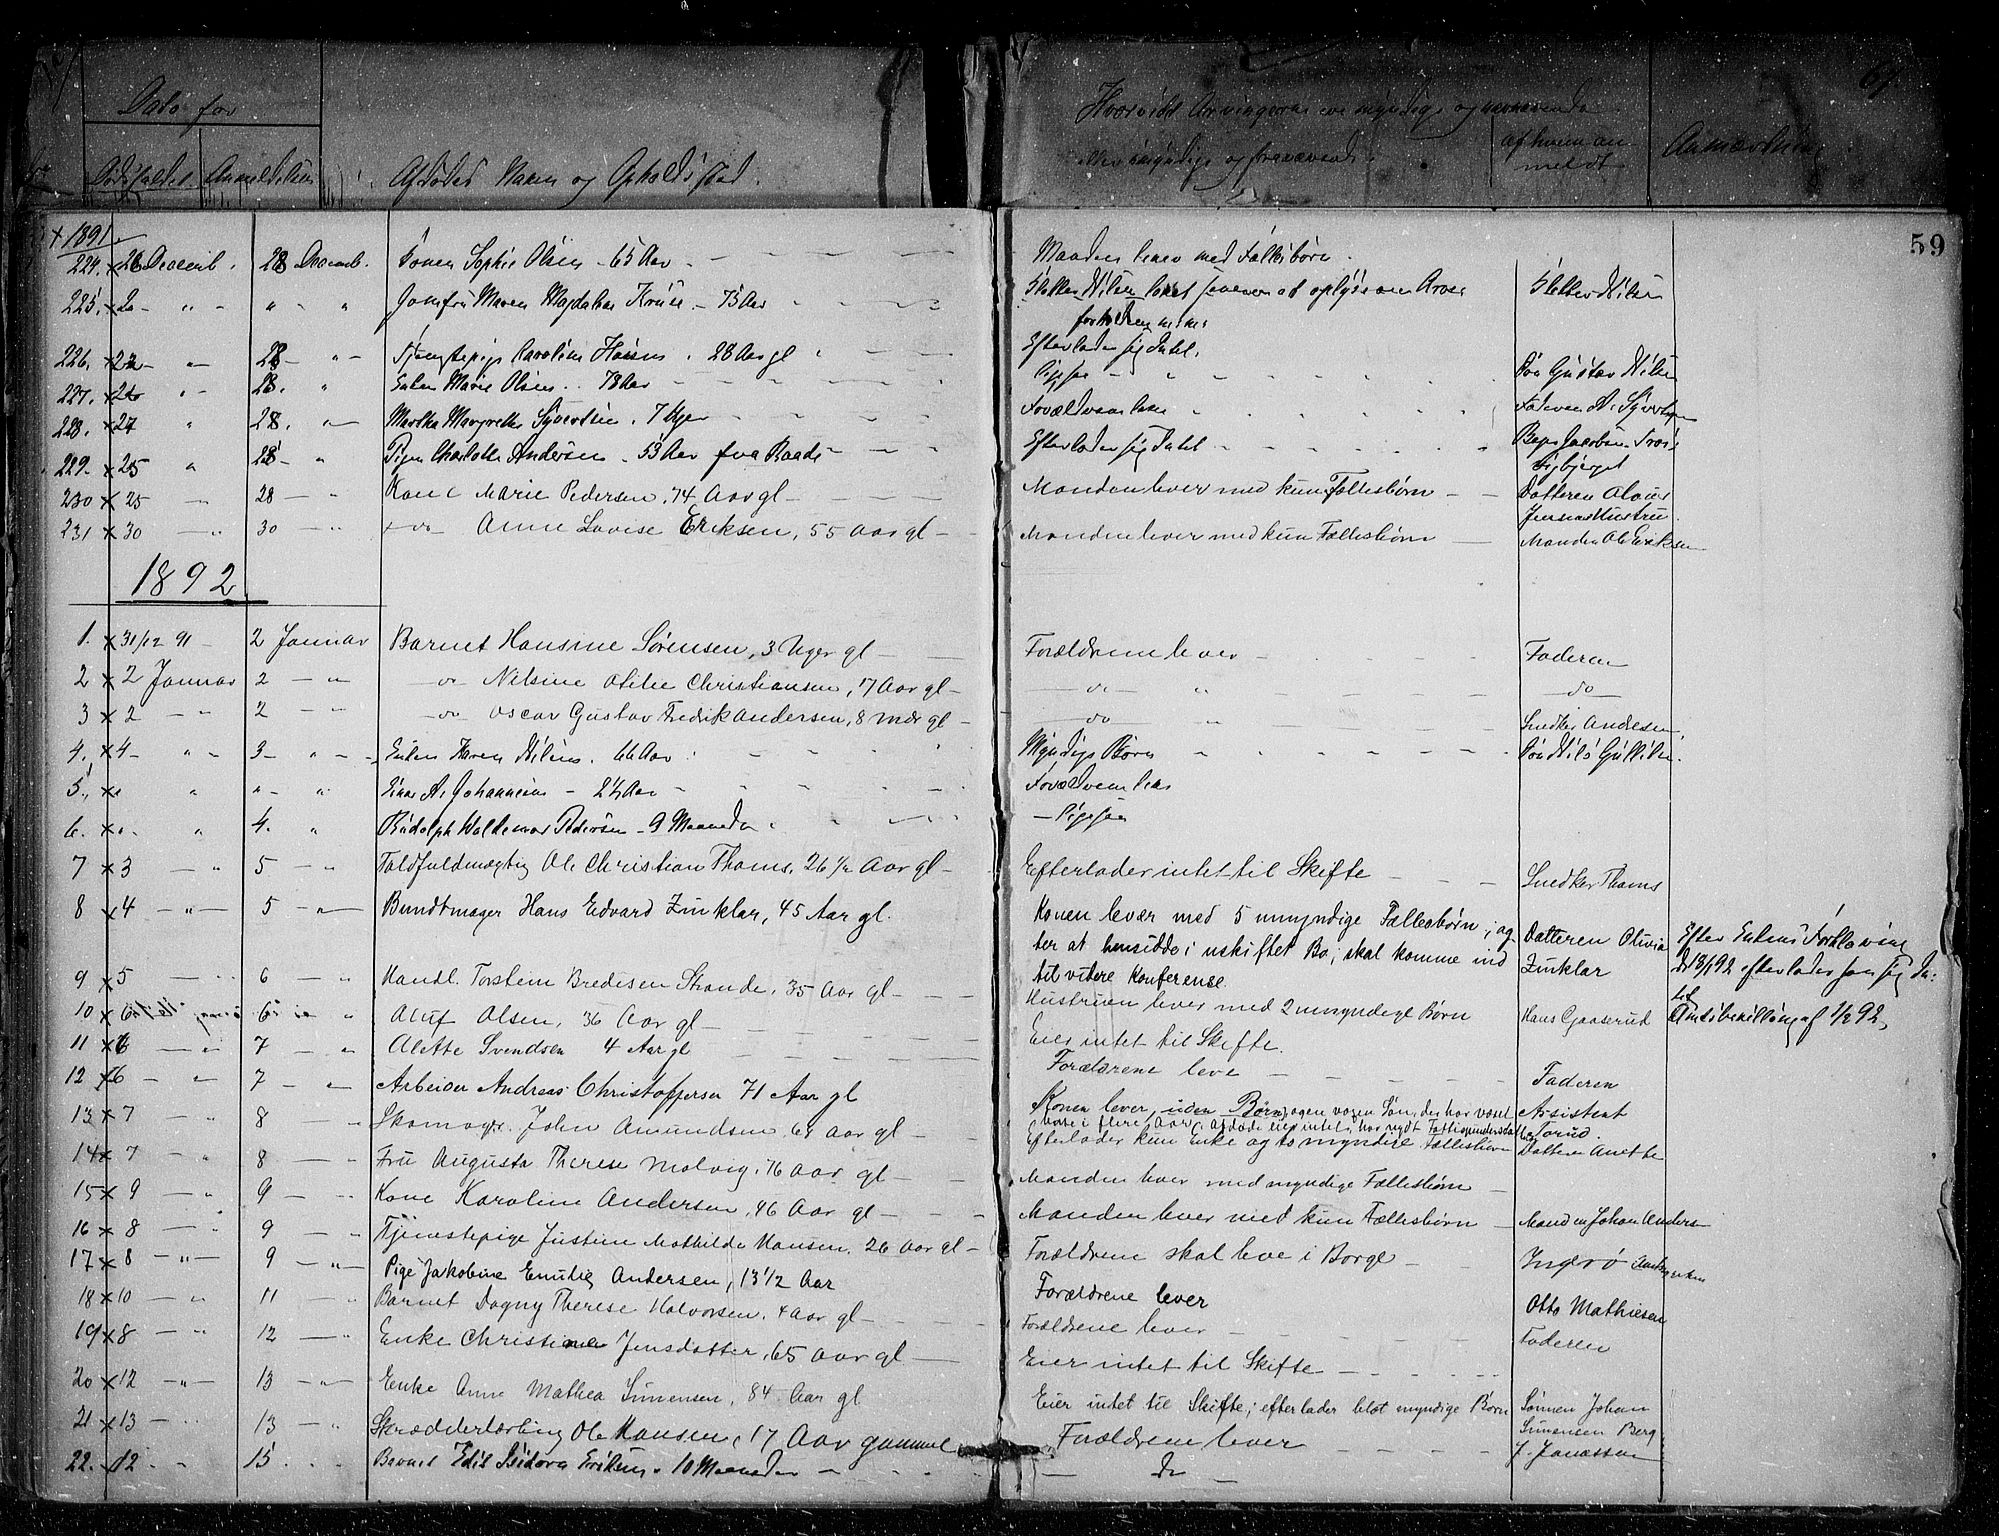 Dato for
Dødsfaldet Anmeldelsen Afdødes Navn og Opholdssted.
Hvorvidt Arvingerne ere myndige og nærværende
eller umyndige og fraværende. af hvem anmeldt Anmærkning
59
1891
224. 26 Decemb. 28 Decemb. Konen Sophie Olsen - 65 Aar - Manden lever med Fællesbørn.
225. Jomfru Maren Magdalene - 75 Aar Nilsen
226. 28 Tjenestepige Caroline Hansen. 28 Aar gl Efterlader sig Intet.
227. 28. Enken Marie Olsen. 78 Aar Ligesaa Søn Gustav Nilsen
228. 27 28. Martha Margrethe Syvertsen. 7 Uger Forældrene leve Faderen A. Syvertsen
229. 25 28 Pigen Charlotte Andersen. 53 Aar fra Raade Efterlader sig Intet Jacobsen
230 25 28 Kone Marie Pedersen, 74 Aar gl Manden lever med kun Fællesbørn Datteren
Jensens Hustru.
231 30 30 do Anne Lovise Eriksen, 55 Aar gl Manden lever med kun Fællesbørn Manden Ole Eriksen
1892
1. 31/12 91 2 Januar Barnet Hansine Sørensen, 3 Uger gl Forældrene lever Faderen
2 2 Januar 2 do Nilsine Otilie Christiansen, 17 Aar gl do do
3 2 2 do Oscar Gustav Fredrik Andersen, 8 mdr gl do Snedker Andersen.
4. 4 3 Enken Karen Nilsen. 66 Aar Myndige Børn Søn Nils Gulliksen.
5. Einar A. Johannesen - 2½ Aar Forældrene leve
6. 4. Rudolph Waldemar Pedersen - 9 Maaneder Ligesaa
7 3 5 Toldfuldmægtig Ole Christian Thams. 26 1/2 Aar gl Efterlader intet til Skifte Snedker Thams
8 4 5 Bundtmager Hans Edvard Zinklar, 45 Aar gl. Konen lever med 5 umyndige Fællesbørn; ag-
ter at hensidde i uskiftet Bo; skal komme ind
til videre Konference. Datteren Olivia
Zinklar Efter Enkens Forklaring
d 13/1 92 efterlader han sig In-
tet
9 5 6 Handl. Torstein Bredesen Strande, 35 Aar gl Hustruen lever med 2 umyndige Børn Hans Gaaserud Amtsbevilling af 1/2 92
10 6 Oluf Olsen, 36 Aar gl Eier intet til Skifte.
11 6 7 Alette Svendsen 4 Aar gl Forældrene leve Faderen
12 6 7 Arbeider Andreas Christoffersen 71 Aar gl Konen lever, uden Børn, ogen voxen Søn, der har været
borte i flere Aar; Afdøde eier intet; har nydt Fattigunderstøttelse Assistent
Torud.
13 7 8 Skomager John Amundsen 68 Aar gl Efterlader kun Enke og to myndige Fællesbørn Datteren Anette
14 7 8 Fru Augusta Therese Molvig, 76 Aar gl Manden lever med myndige Fællesbørn
15 9 9 Kone Karoline Andersen, 46 Aar gl Manden lever med kun Fællesbørn Manden Johan Anders
16 8 9 Tjenestepige Justine Mathilde Hansen, 26 Aar gl Forældrene skal leve i Borge Ingerø
17 8 9 Pige Jakobine Emilie Andersen, 13 1/2 Aar Forældrene lever Otto Mathiesen
18 10 11 Barnet Dagny Therese Halvorsen, 4 Aar gl Forældrene lever Faderen
19 8 12 Enke Christine Jensdatter, 65 Aar gl Eier intet til Skifte
20 12 13 Enke Anne Mathea Simensen, 84 Aar gl Eier intet til Skifte; efterlader blot myndige Børn Sønnen Johan
Simensen Berg
21 13 13 Skrædderlærling Ole Hansen, 17 Aar gammel Forældrene lever J. Jonassen
22. 12 15 Barnet Edil Isidora Eriksen. 10 Maaneder do